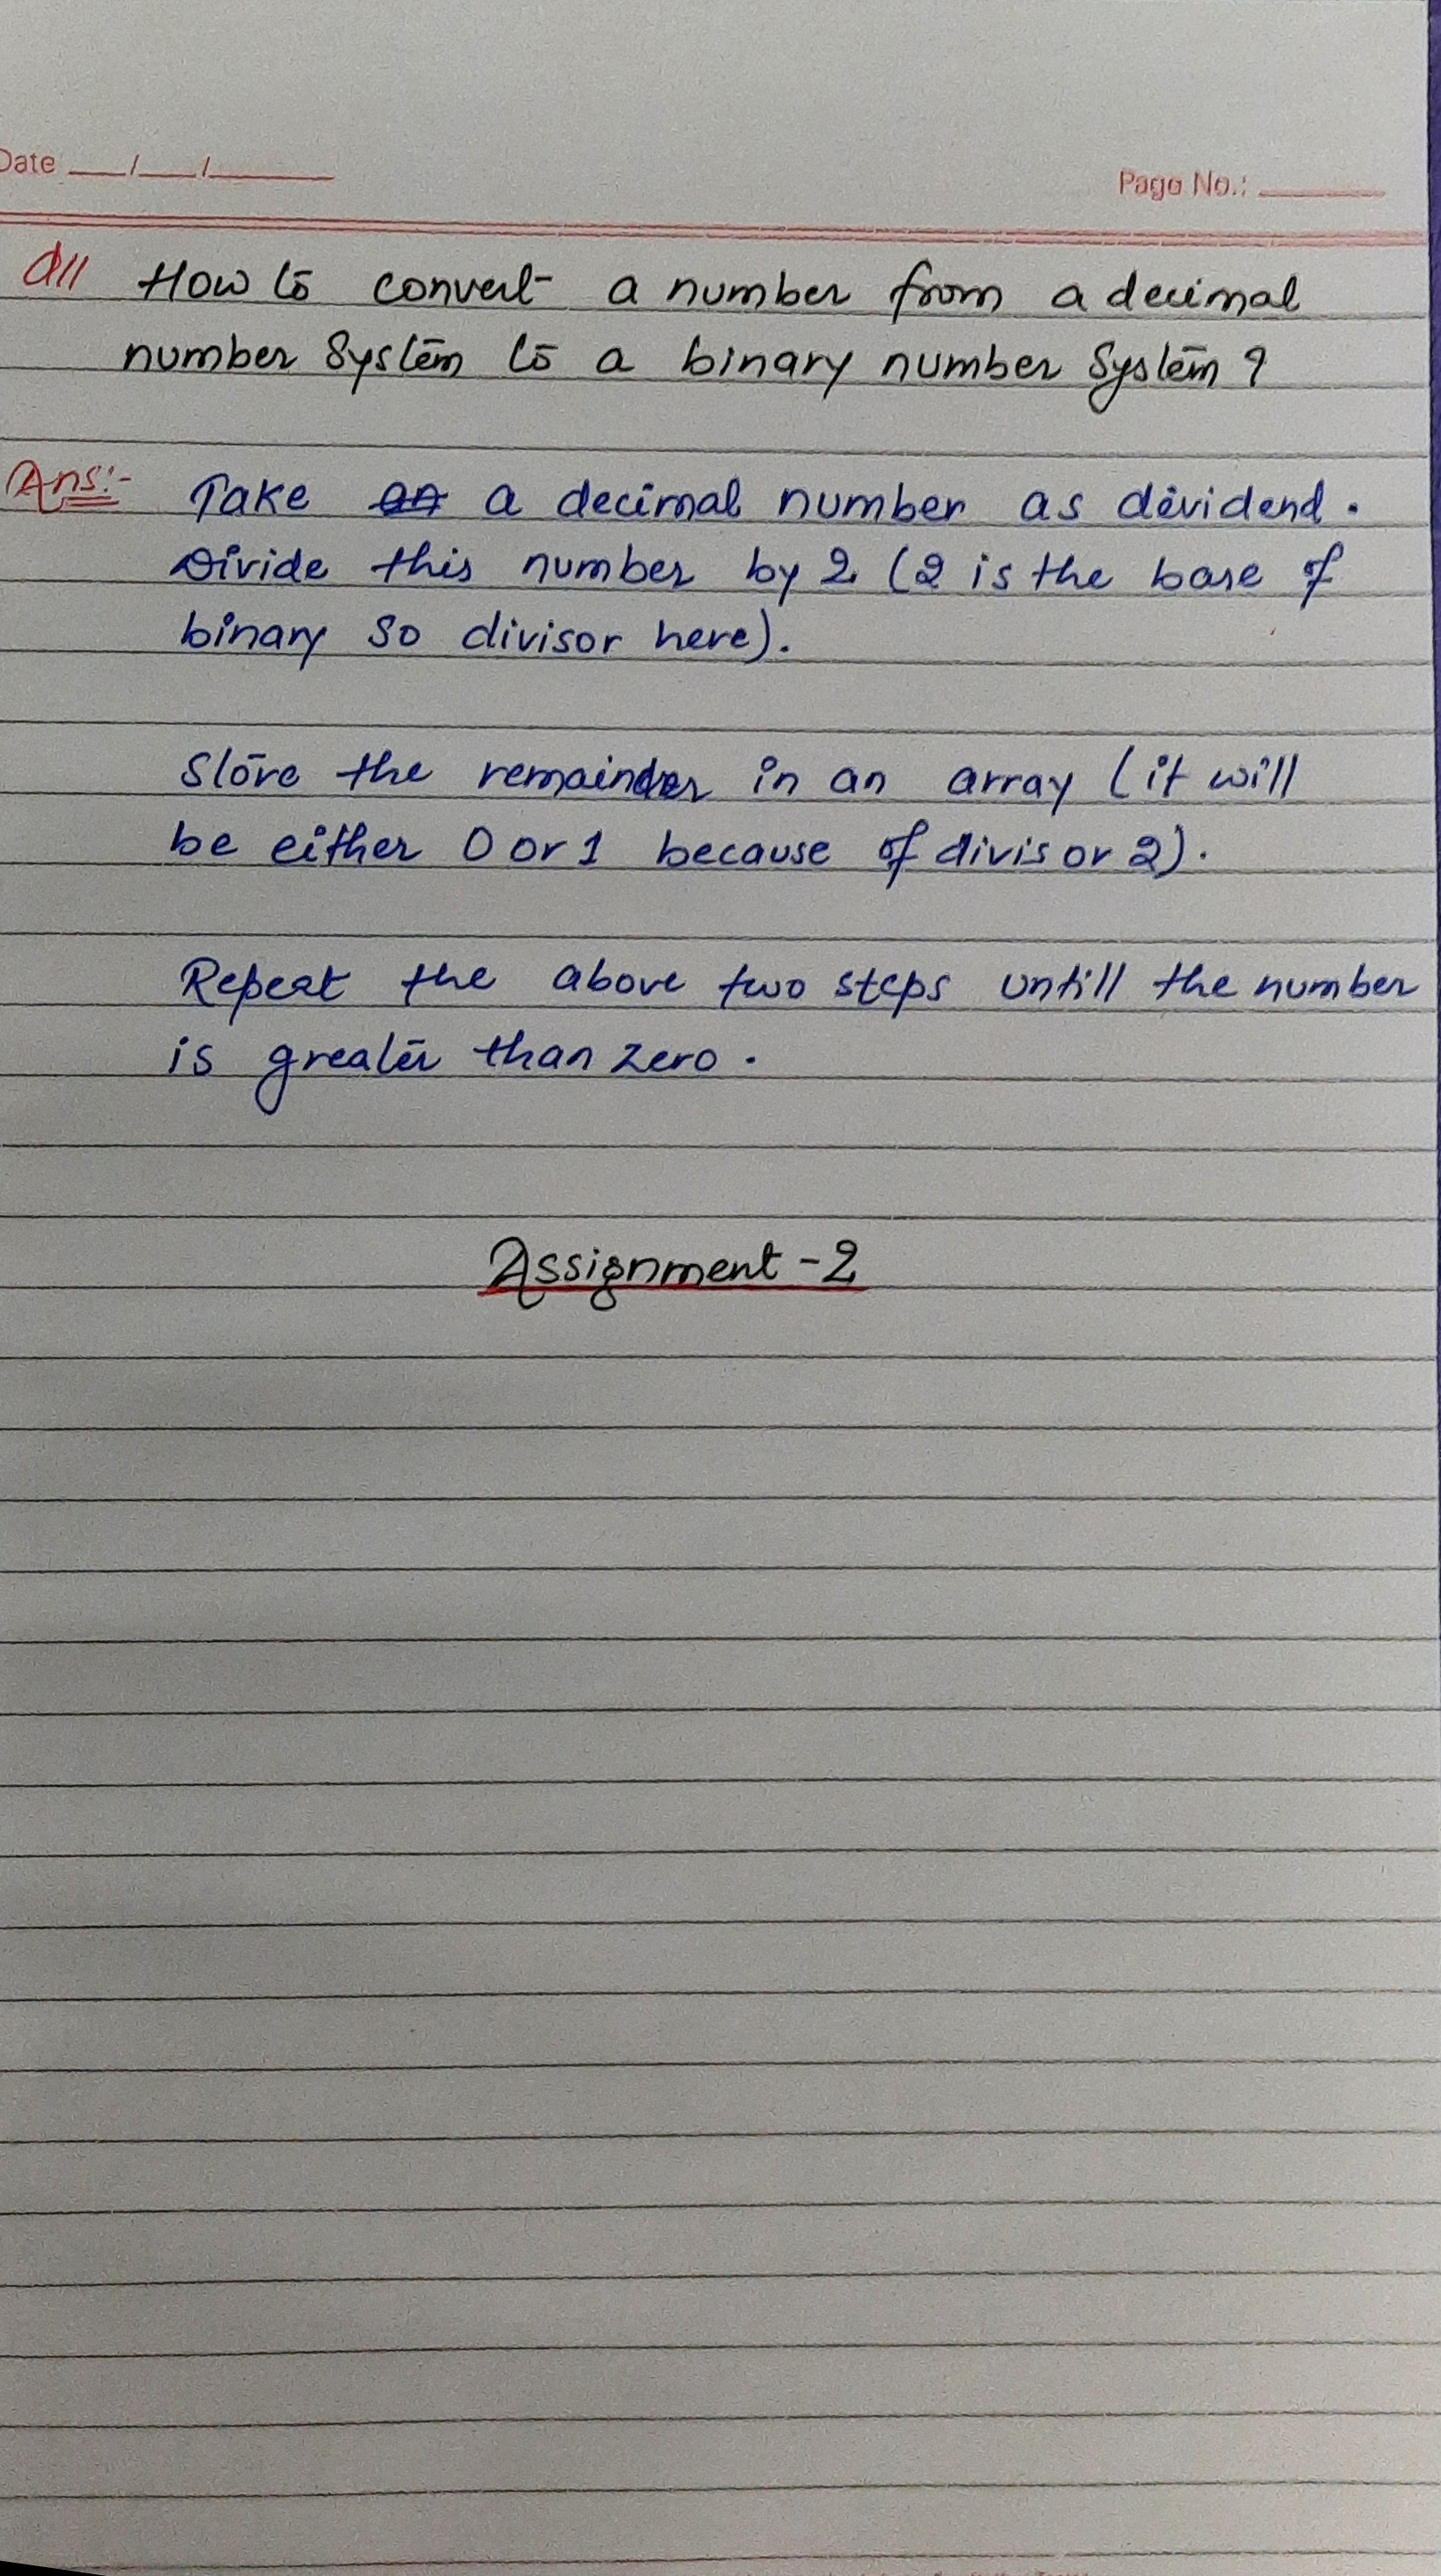 Date ___/___/______
Page No.: ______
Q11 How to convert a number from a decimal
number System to a binary number System ?
Ans:- Take a decimal number as dividend.
Divide this number by 2 (2 is the base of
binary so divisor here).
Store the remainder in an array (it will
be either 0 or 1 because of divisor 2).
Repeat the above two steps untill the number
is greater than zero.
Assignment - 2